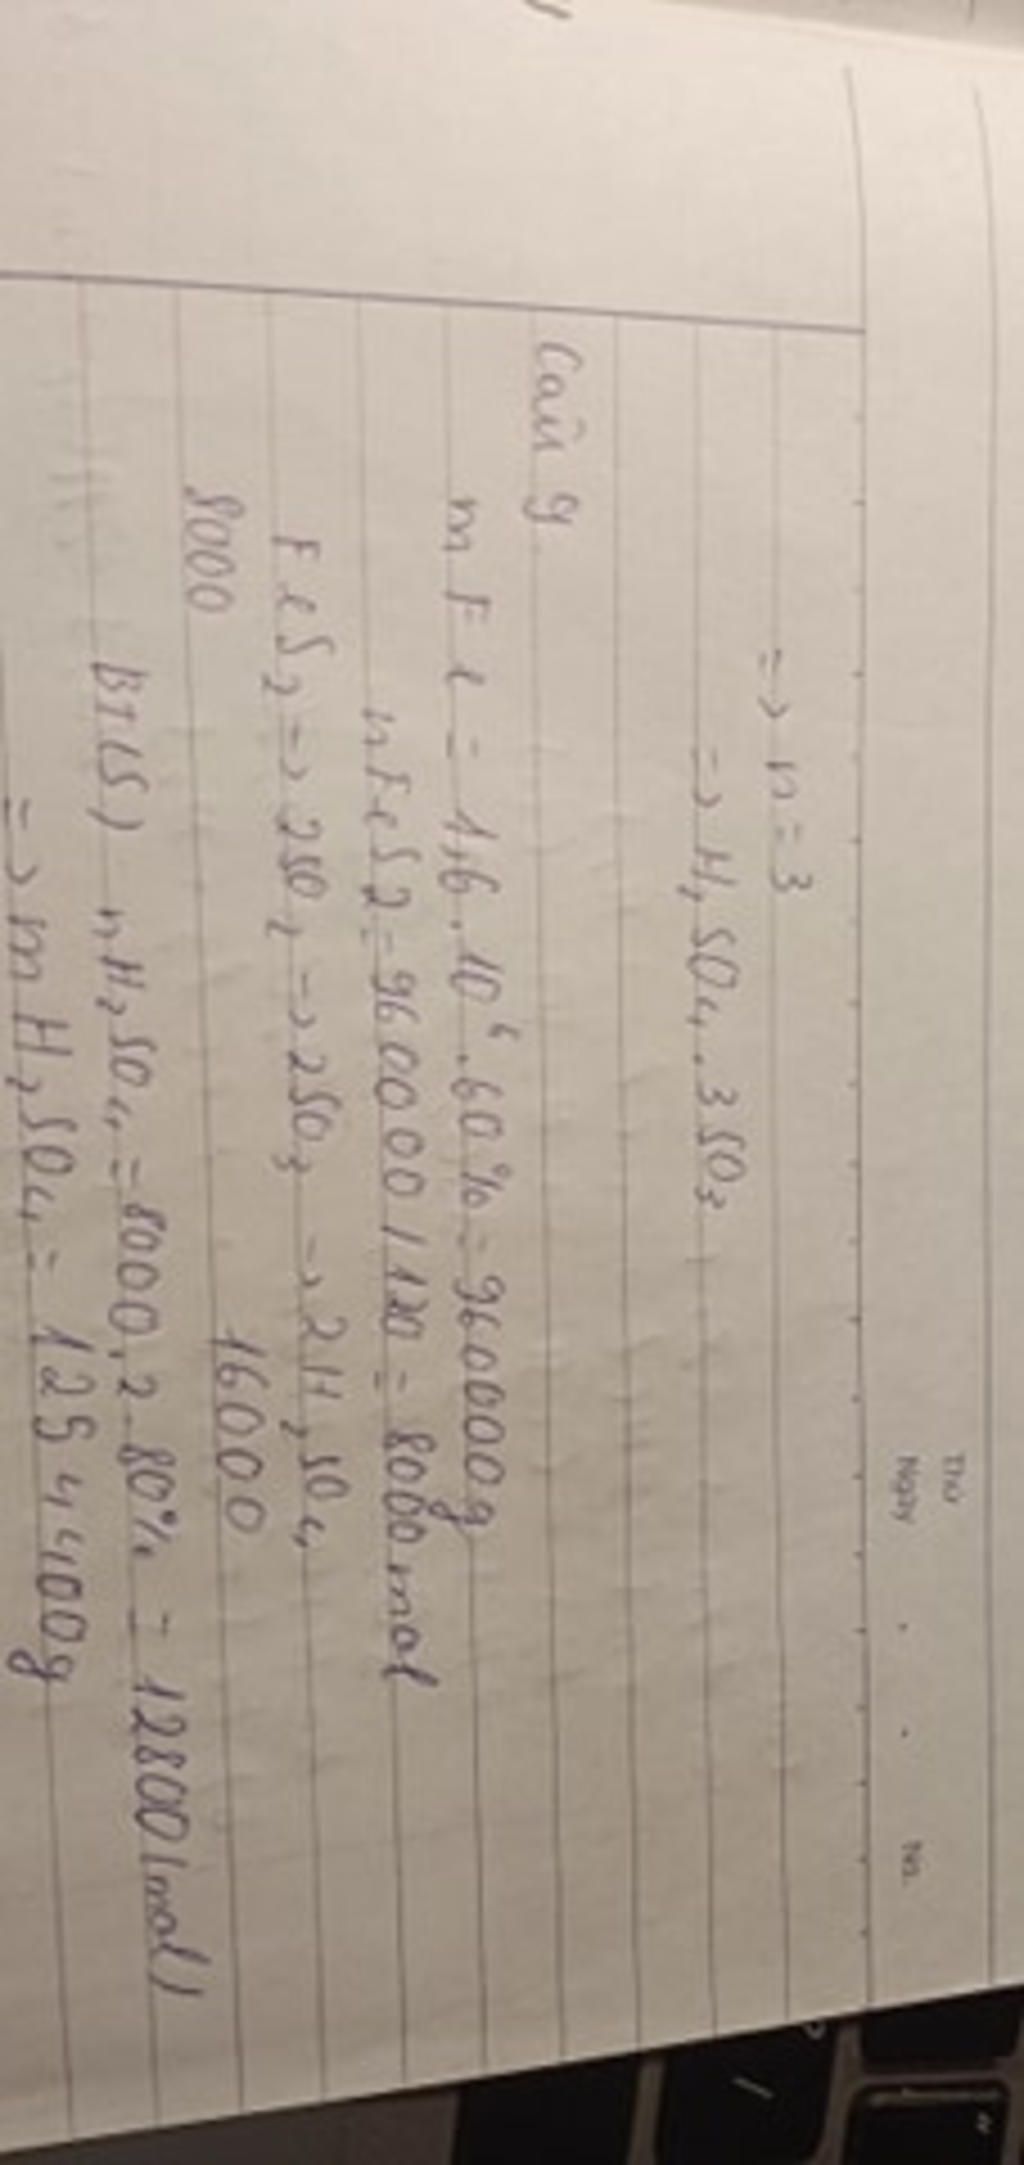 Thứ
Ngày . . No.
=> n = 3
=> H₂SO₄.3SO₃
Câu 9
mFe = 1,6.10⁶.60% = 960000g
nFeS2 = 960000/120 = 8000mol
FeS₂ -> 2SO₂ -> 2SO₃ -> 2H₂SO₄
8000 16000
BT(S) nH₂SO₄ = 8000.2.80% = 12800(mol)
=> mH₂SO₄ = 1254400g